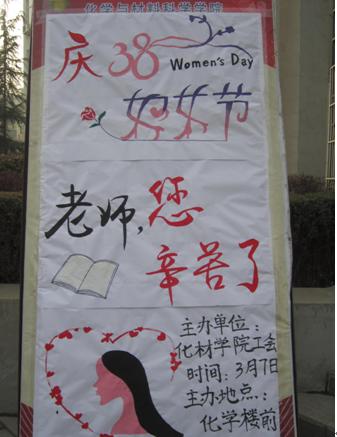 化学与材料科学学院
庆38
Women's Day
妇女节
老师,您
辛苦了
主办单位：
化材学院工会
时间：3月7日
主办地点：
化学楼前